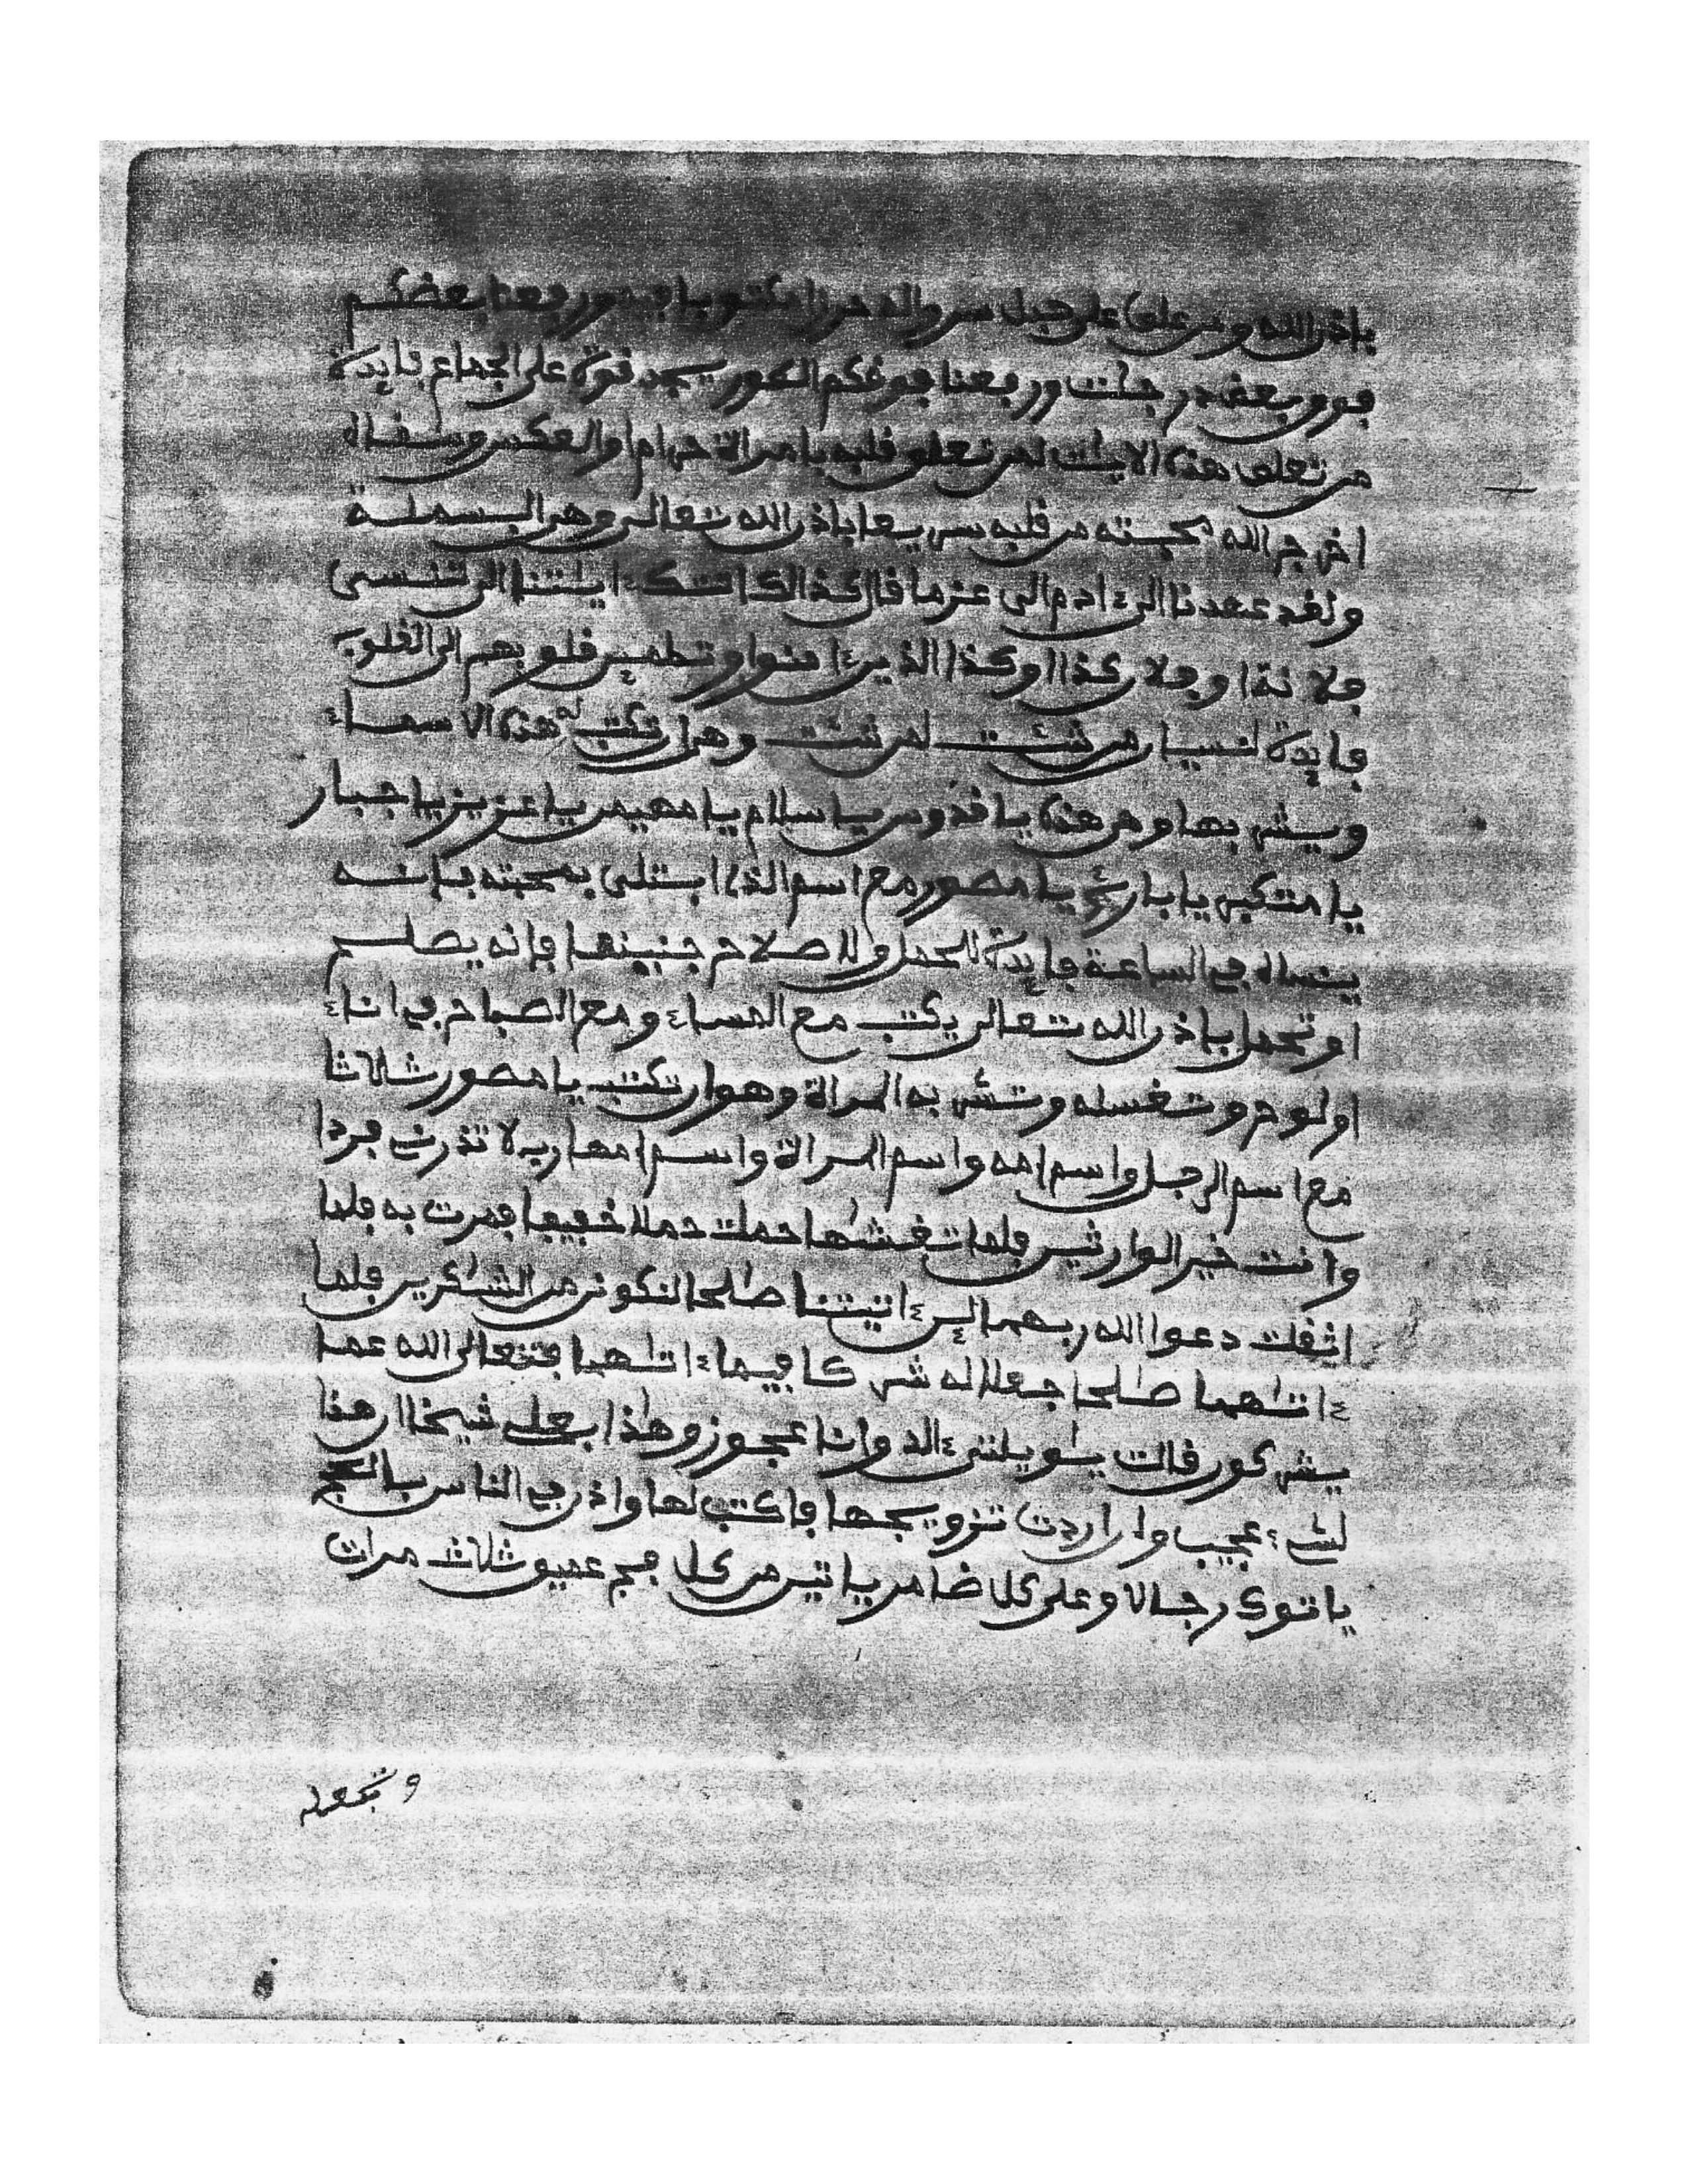 باذن الله ومن علق على حبل سرواله حرزا مكتوبا فيه ورفعنا بعضكم
فوق بعض درجات ورفعنا فوقكم الطور يجد قوة على الجماع فايدة
من تعلق هذه الايات لمن تعلق قلبه بامراة حرام او العكس وسقاه
اخرج الله محبته من قلبه سريعا باذن الله تعالى وهي البسملة
ولقد عهدنا الى ءادم الى عزما قال كذالك اتتك ءايلتنا الى تنسى
فلانة او فلان كذا وكذا الذين ءامنوا وتطمين قلوبهم الى القلوب
فايدة لنسيان من شئت لمن شئت وهي ان تكتب له هذه الاسماء
ويشربها وهي هذه يا قدوس يا سلام يا مهيمن يا عزيز يا جبار
يا متكبر يا بارئ يا مصور مع اسم الذي ابتلى بمحبته فإنه
ينساه في الساعة فايدة للحمل وللاصلاح جنينها فإنه يصلح
او تحمل باذن الله تعالى يكتب مع المساء ومع الصباح في اناء
او لوح وتغسله وتشربه المراة وهو ان تكتب يا مصور ثلاثا
مع اسم الرجل واسم امه واسم المراة واسم امها رب لا تذرني فردا
وانت خير الوارثين فلما تغشلها حملت حملا خفيفا فمرت به فلما
اثقلت دعوا الله ربهما لين ءاتيتنا صلحا لنكونن من الشكرين فلما
ءاتلهما صلحا جعلا له شركا فيما ءاتلهما فتعالى الله عما
يشركون قالت يلويلتى ءالد وانا عجوز وهذا بعلي شيخا ان هذا
لشيء عجيب وان اردت تزويجها فاكتب لها واذن في الناس بالحج
ياتوك رجالا وعلى كل ضامر ياتين من كل فج عميق ثلاث مرات
وتجعله